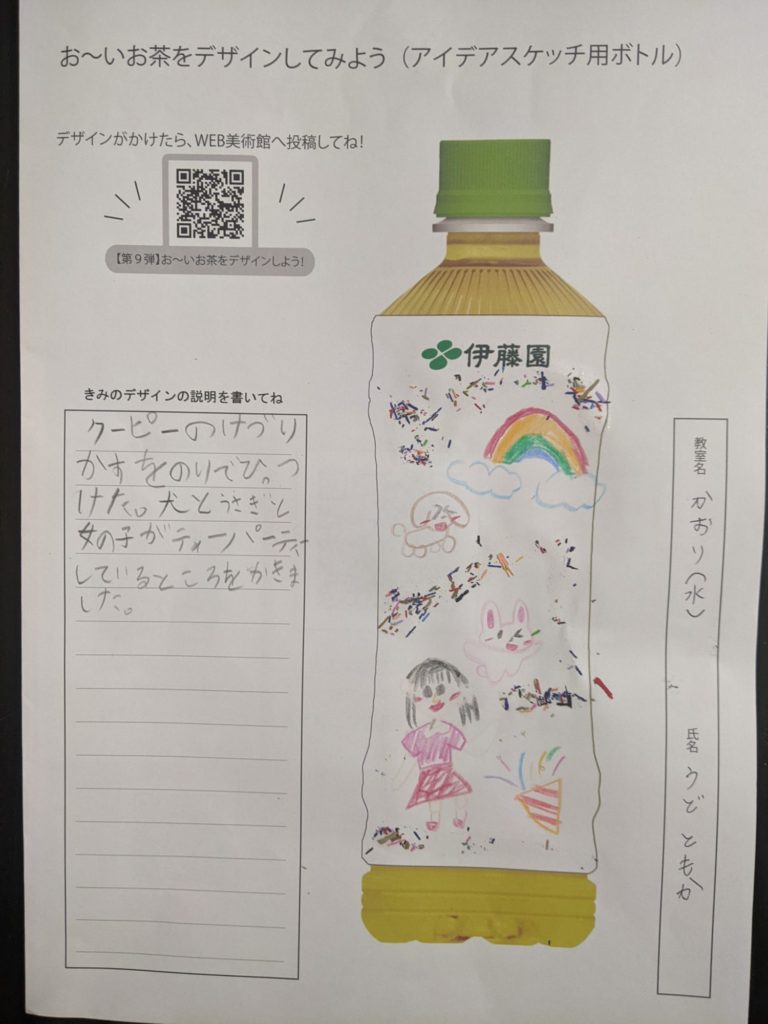 お〜いお茶をデザインしてみよう（アイデアスケッチ用ボトル）
デザインがかけたら、WEB美術館へ投稿してね！
【第９弾】お〜いお茶をデザインしよう！
伊藤園
きみのデザインの説明を書いてね
クーピーのけづり
かすをのりでひっつ
けた。犬とうさぎと
女の子がティーパーティー
しているところをかきま
した。
教室名 かおり(水)
氏名 うど ともか